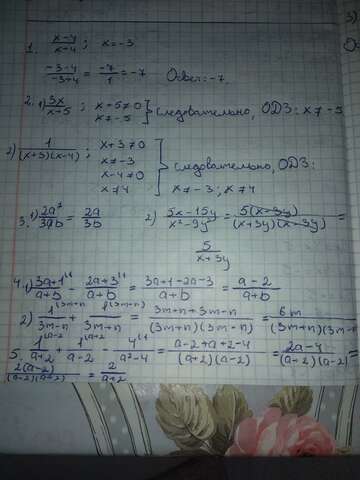 1. (x-4)/(x+4); x=-3.
(-3-4)/(-3+4) = -7/1 = -7 Ответ: -7.
2. 1) 3x/(x+5); x-5≠0
x≠-5 } следовательно, ОДЗ: x≠-5
2) 1/((x+3)(x-4)); x+3≠0
x≠-3
x-4≠0
x≠4 } следовательно, ОДЗ:
x≠-3; x≠4
3. 1) 2a²/3ab = 2a/3b 2) (5x-15y)/(x²-9y²) = 5(x-3y)/((x+3y)(x-3y))
5/(x+3y)
4. 1) (3a+1)/(a+b) - (2a+3)/(a+b) = (3a+1-2a-3)/(a+b) = (a-2)/(a+b)
2) 1/(3m-n) + 1/(3m+n) = (3m+n+3m-n)/((3m+n)(3m-n)) = 6m/((3m+n)(3m-
5. 1/(a+2) + 1/(a-2) - 4/(a²-4) = (a-2+a+2-4)/((a+2)(a-2)) = (2a-4)/((a+2)(a-2)) =
2(a-2)/((a-2)(a+2)) = 2/(a+2)